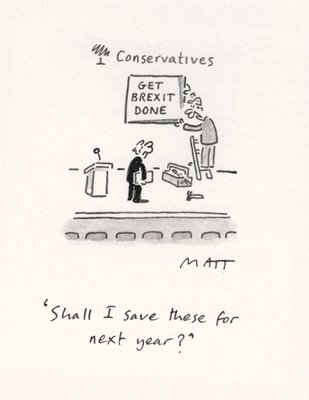 Conservatives
GET
BREXIT
DONE
MATT
'Shall I save these for
next year?'